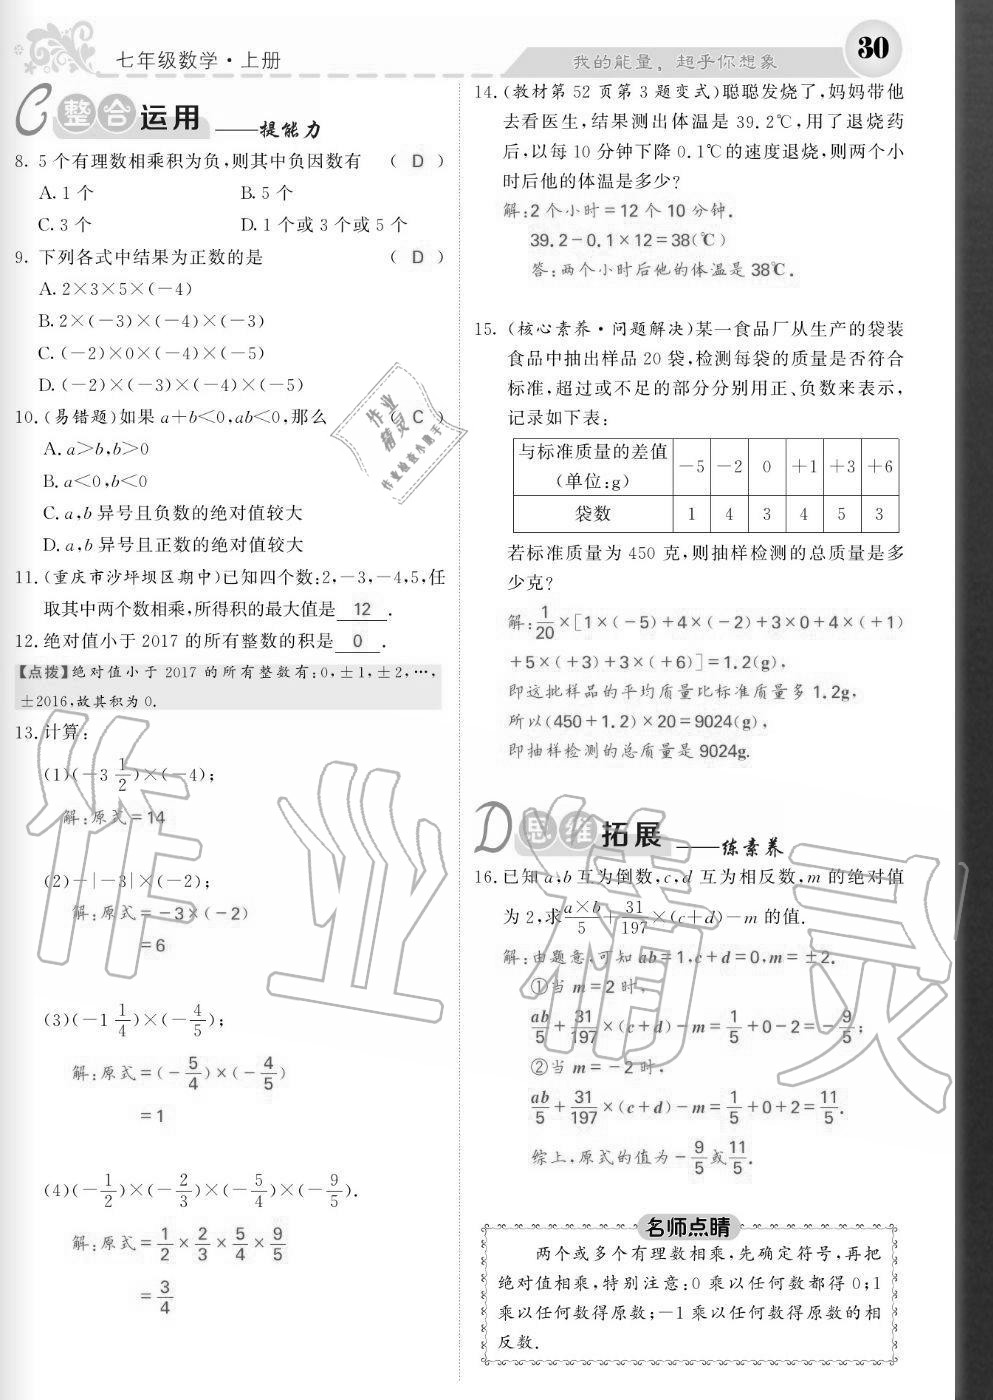 七年级数学·上册
我的能量，超乎你想象
30
C 整合运用——提能力
8. 5个有理数相乘积为负,则其中负因数有 ( D )
A. 1个 B. 5个
C. 3个 D. 1个或3个或5个
9. 下列各式中结果为正数的是 ( D )
A. 2×3×5×(-4)
B. 2×(-3)×(-4)×(-3)
C. (-2)×0×(-4)×(-5)
D. (-2)×(-3)×(-4)×(-5)
10. (易错题)如果a+b<0,ab<0,那么 ( C )
A. a>b,b>0
B. a<0,b<0
C. a,b异号且负数的绝对值较大
D. a,b异号且正数的绝对值较大
11. (重庆市沙坪坝区期中)已知四个数:2,-3,-4,5,任
取其中两个数相乘,所得积的最大值是 12 .
12. 绝对值小于2017的所有整数的积是 0 .
【点拨】绝对值小于 2017 的所有整数有:0,±1,±2,…,
±2016,故其积为0.
13. 计算:
(1)(-3 1/2)×(-4);
解:原式=14
(2)-|-3|×(-2);
解:原式=-3×(-2)
=6
(3)(-1 1/4)×(-4/5);
解:原式=(-5/4)×(-4/5)
=1
(4)(-1/2)×(-2/3)×(-5/4)×(-9/5).
解:原式=1/2×2/3×5/4×9/5
=3/4
14. (教材第52页第3题变式)聪聪发烧了,妈妈带他
去看医生,结果测出体温是39.2℃,用了退烧药
后,以每10分钟下降0.1℃的速度退烧,则两个小
时后他的体温是多少?
解:2个小时=12个10分钟.
39.2-0.1×12=38(℃)
答:两个小时后他的体温是38℃.
15. (核心素养·问题解决)某一食品厂从生产的袋装
食品中抽出样品20袋,检测每袋的质量是否符合
标准,超过或不足的部分分别用正、负数来表示,
记录如下表:
与标准质量的差值(单位:g) -5 -2 0 +1 +3 +6
袋数 1 4 3 4 5 3
若标准质量为450克,则抽样检测的总质量是多
少克?
解:1/20×[1×(-5)+4×(-2)+3×0+4×(+1)
+5×(+3)+3×(+6)]=1.2(g),
即这批样品的平均质量比标准质量多1.2g,
所以(450+1.2)×20=9024(g),
即抽样检测的总质量是9024g.
D 思维拓展——练素养
16. 已知a,b互为倒数,c,d互为相反数,m的绝对值
为2,求a×b/5+31/197×(c+d)-m的值.
解:由题意,可知ab=1,c+d=0,m=±2.
①当m=2时,
ab/5+31/197×(c+d)-m=1/5+0-2=-9/5;
②当m=-2时,
ab/5+31/197×(c+d)-m=1/5+0+2=11/5.
综上,原式的值为-9/5或11/5.
名师点睛
两个或多个有理数相乘,先确定符号,再把
绝对值相乘,特别注意:0乘以任何数都得0;1
乘以任何数得原数;-1乘以任何数得原数的相
反数.
作业精灵
作业
精灵
作业检查小助手